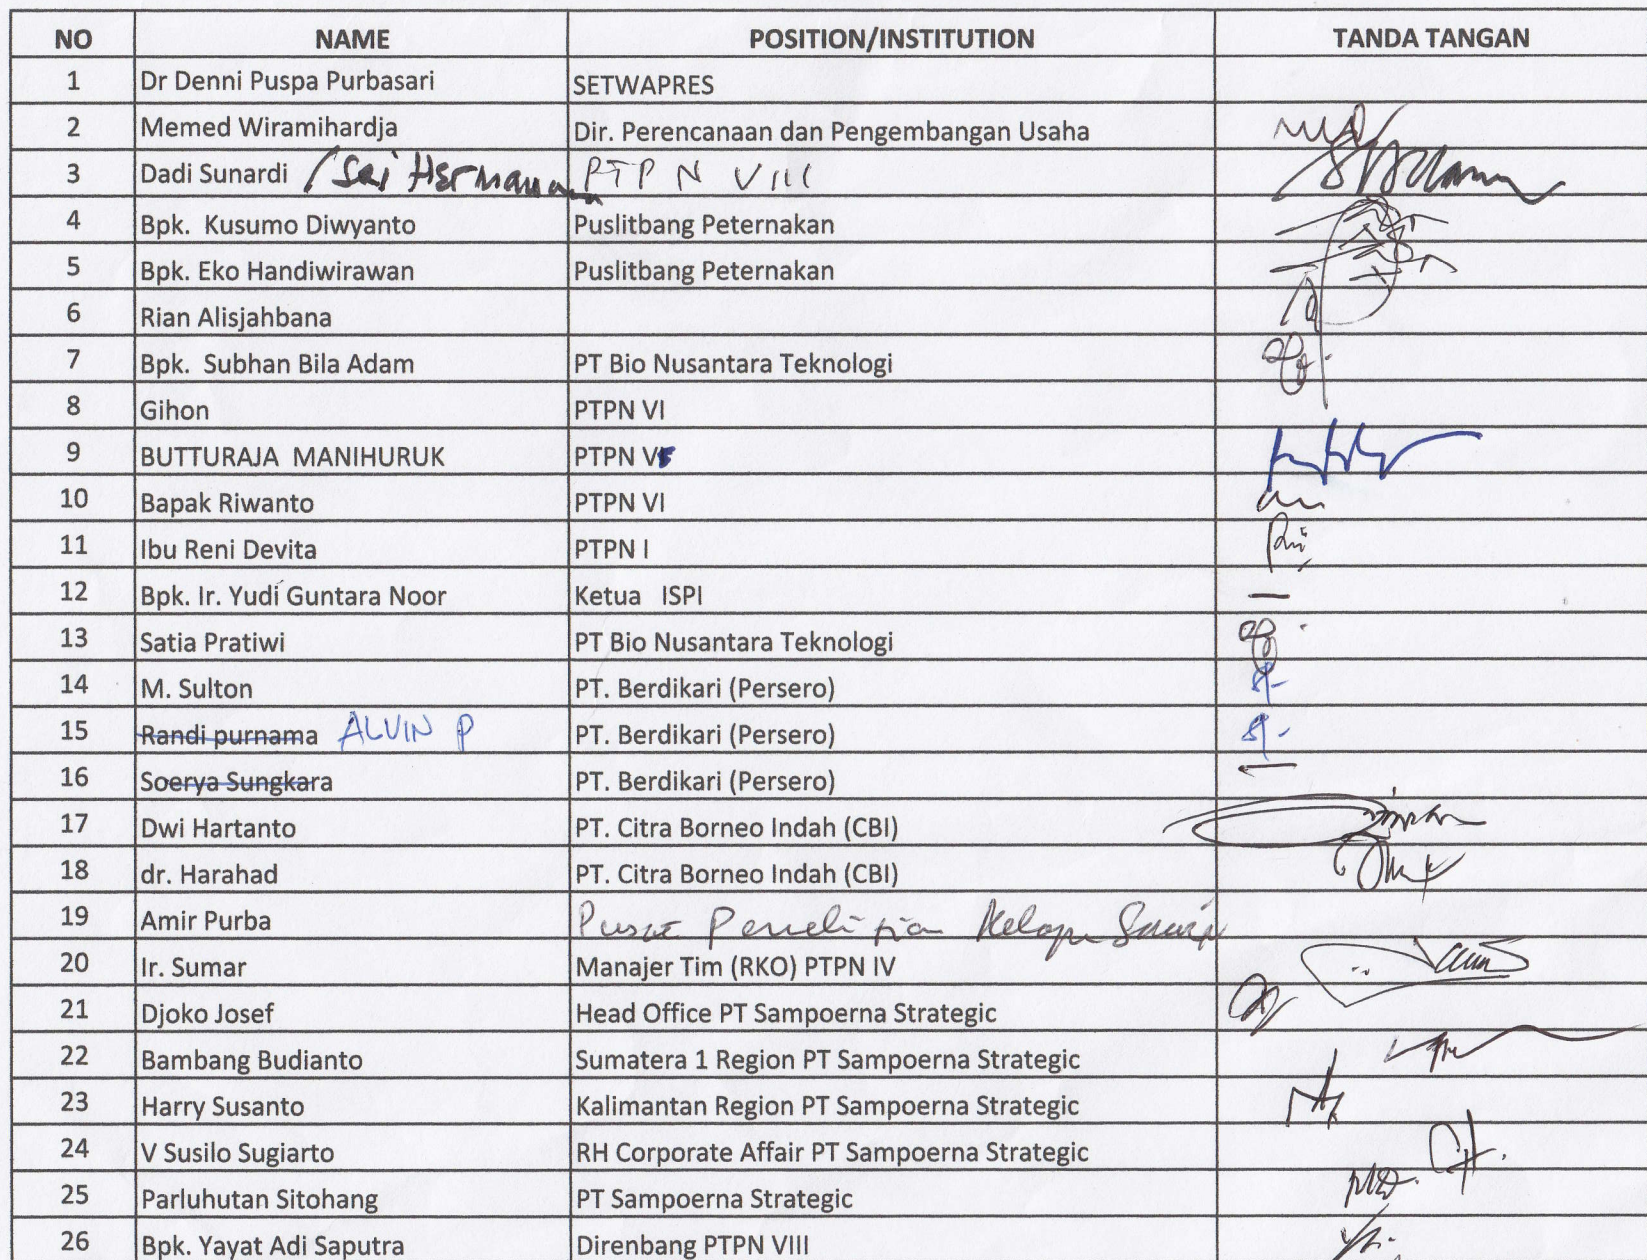 NO NAME POSITION/INSTITUTION TANDA TANGAN
1 Dr Denni Puspa Purbasari SETWAPRES
2 Memed Wiramihardja Dir. Perencanaan dan Pengembangan Usaha
3 Dadi Sunardi / Sri Hermawan PTPN VIII
4 Bpk. Kusumo Diwyanto Puslitbang Peternakan
5 Bpk. Eko Handiwirawan Puslitbang Peternakan
6 Rian Alisjahbana
7 Bpk. Subhan Bila Adam PT Bio Nusantara Teknologi
8 Gihon PTPN VI
9 BUTTURAJA MANIHURUK PTPN V
10 Bapak Riwanto PTPN VI
11 Ibu Reni Devita PTPN I
12 Bpk. Ir. Yudi Guntara Noor Ketua ISPI
13 Satia Pratiwi PT Bio Nusantara Teknologi
14 M. Sulton PT. Berdikari (Persero)
15 Randi purnama ALVIN P PT. Berdikari (Persero)
16 Soerya Sungkara PT. Berdikari (Persero)
17 Dwi Hartanto PT. Citra Borneo Indah (CBI)
18 dr. Harahad PT. Citra Borneo Indah (CBI)
19 Amir Purba Pusat Penelitian Kelapa Sawit
20 Ir. Sumar Manajer Tim (RKO) PTPN IV
21 Djoko Josef Head Office PT Sampoerna Strategic
22 Bambang Budianto Sumatera 1 Region PT Sampoerna Strategic
23 Harry Susanto Kalimantan Region PT Sampoerna Strategic
24 V Susilo Sugiarto RH Corporate Affair PT Sampoerna Strategic
25 Parluhutan Sitohang PT Sampoerna Strategic
26 Bpk. Yayat Adi Saputra Direnbang PTPN VIII